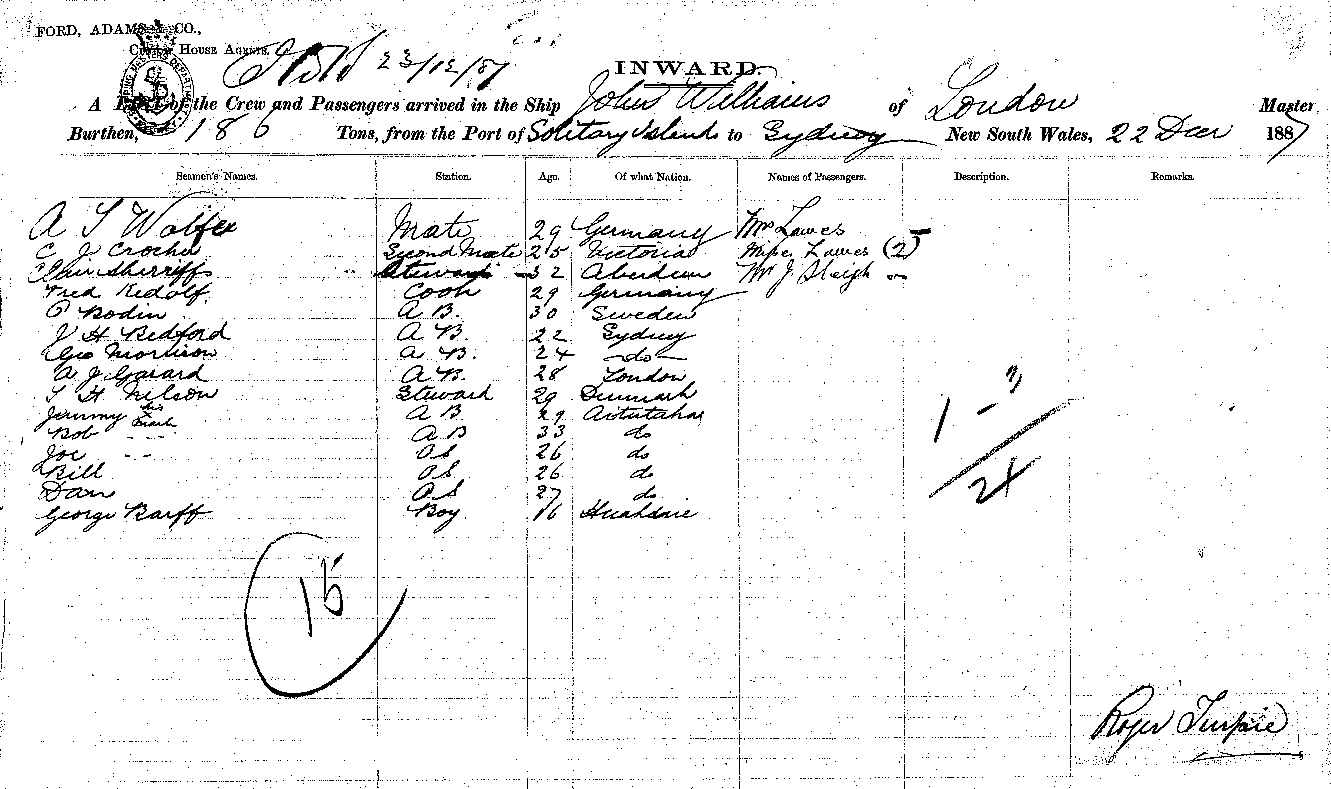 FORD, ADAMS & CO.,
CUSTOM HOUSE AGENTS.
23/12/87
INWARD.
A LIST of the Crew and Passengers arrived in the Ship John Williams of London Master
Burthen, 186 Tons, from the Port of Solitary Islands to Sydney New South Wales, 22 Decr 1887
Seamen's Names. Station. Age. Of what Nation. Names of Passengers. Description. Remarks.
Mate 29 Germany Mrs Lawes
C J Second Mate 25 Victoria Misses Lawes (2)
Sherriffs Steward 32 Aberdeen Mr J Sleigh
Fred Cook 29 Germany
P Bodin A B. 30 Sweden
J H Bedford A B. 22 Sydney
Geo Morrison A B. 24 -do-
A J Garard A B. 28 London
T H Nilson Steward 29 Denmark
Jemmy his x mark A B 29 Aitutaki
Bob " A B 33 do
Joe " OS 26 do
Bill OS 26 do
Dan OS 27 do
George Barff Boy 16 Huahine
1 - 3
24
15
Roger Turpie